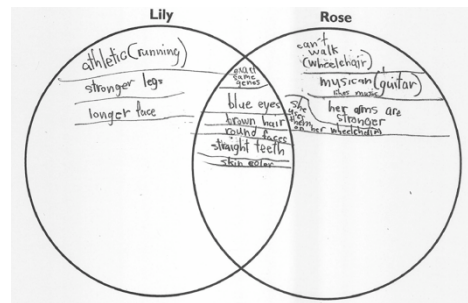 Lily
Rose
athletic (running)
stronger legs
longer face
exact
same
genes
blue eyes
brown hair
round faces
straight teeth
skin color
can't
walk
(wheelchair)
musican (guitar)
her arms are
stronger
she
them
on her wheelchair